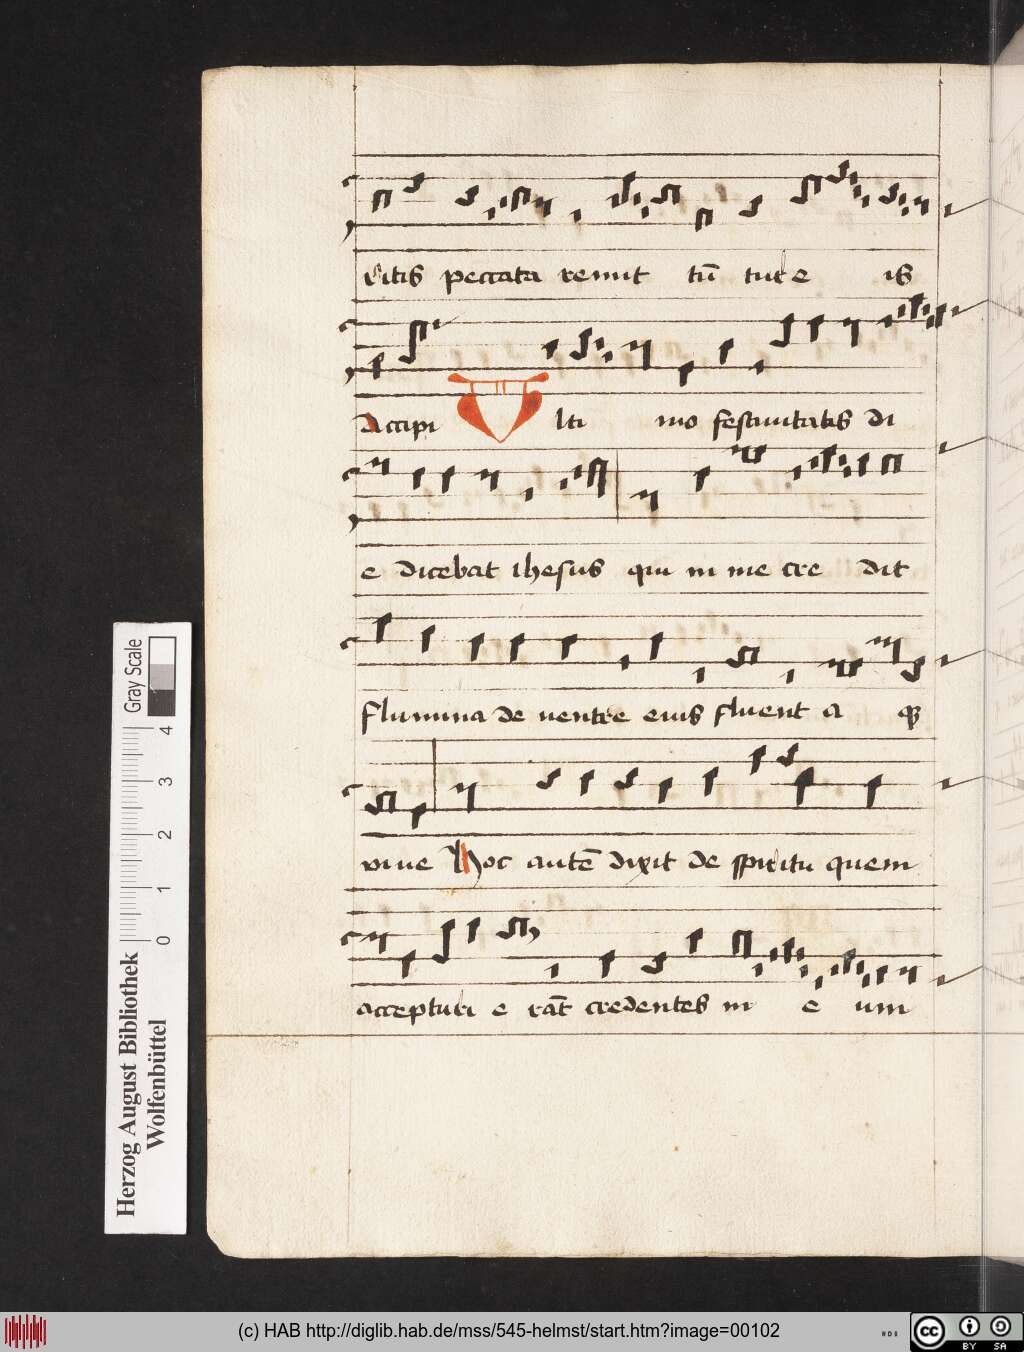 ritis peccata remit tu᷒ tur e is
Accipi Vlti mo festiuitatis di
e dicebat ihesus qui in me cre dit
flumina de uentre eius fluent a q
vi ue Hoc autē dixit de spiritu quem
accepturi e rāt credentes in e um
Gray Scale
0 1 2 3 4
Herzog August Bibliothek
Wolfenbüttel
(c) HAB http://diglib.hab.de/mss/545-helmst/start.htm?image=00102
cc BY SA